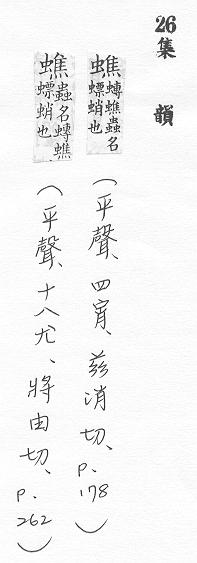 26集韻
蟭 蟳蟭蟲名螵蛸也
(平聲、四宵、茲消切、p.178)
蟭 蟲名蟳蟭螵蛸也
(平聲、十八尤、將由切、p.262)